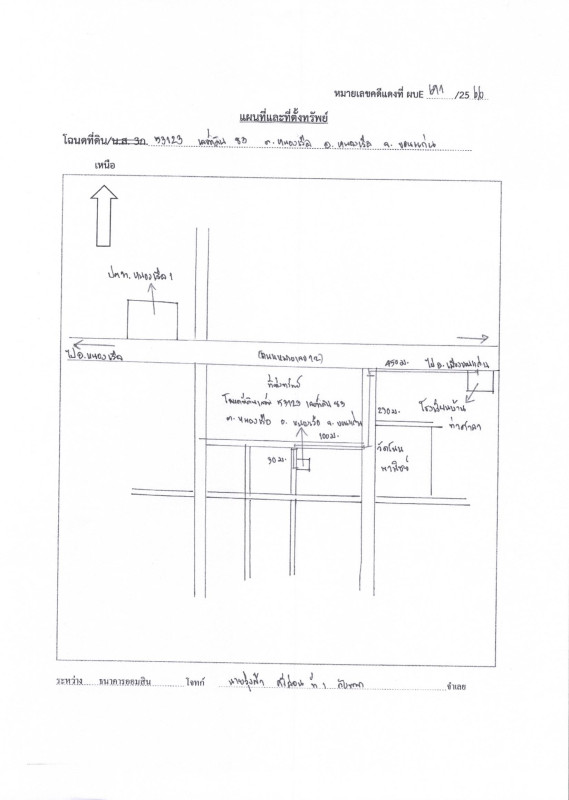 หมายเลขคดีแดงที่ ผบE ๒๙๑ /25 ๖๖
แผนที่และที่ตั้งทรัพย์
โฉนดที่ดิน/น.ส. 3ก. ๕3123 เลขที่ดิน ๕๑ ต. หนองเรือ อ. หนองเรือ จ. ขอนแก่น
เหนือ
ปตท. หนองเรือ 1
ไป อ. หนองเรือ
(ถนนหมายเลข 12)
450 ม.
ไป อ. เมืองขอนแก่น
ที่ตั้งทรัพย์
โฉนดที่ดินเลขที่ ๕3123 เลขที่ดิน ๕๑
ต. หนองเรือ อ. หนองเรือ จ. ขอนแก่น
230 ม.
โรงเรียนบ้าน
ท่าศาลา
100 ม.
30 ม.
วัดโนน
พาณิชย์
ระหว่าง ธนาคารออมสิน โจทก์ นายรุ่งฟ้า ที่ 1 กับพวก จำเลย